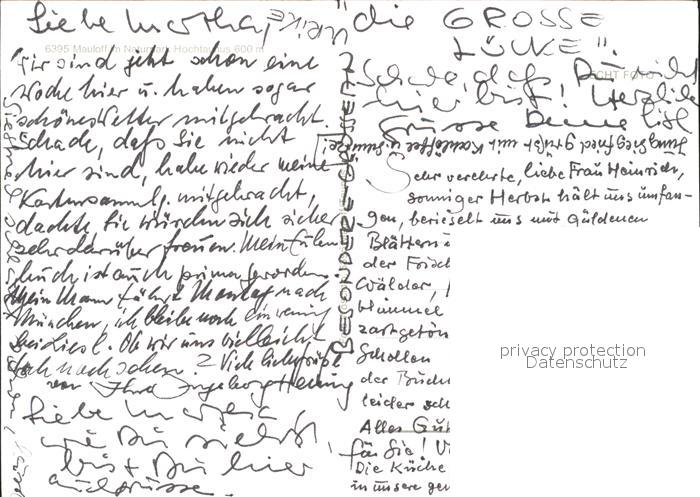 Liebe Martha,
6395 Mauloff im Naturpark Hochtaunus 600 m
wir sind jetzt schon eine
Woche hier u. haben sogar
schönes Wetter mitgebracht.
Schade, daß Sie nicht
hier sind, habe wieder meine
mitgebracht,
dachte, Sie würden sich sicher
sehr darüber freuen. Mein
buch ist auch prima geworden.
Mein Mann fährt Montag nach
München, ich bleibe noch ein wenig
bei Liesl. Ob wir uns vielleicht
doch noch sehen? Viele liebe Grüße
von Ihrer Ingeborg
Liebe Martha,
wie Du siehst,
bist Du hier
die GROSSE
LÜCKE".
Schade, daß Du nicht
hier bist! Herzliche
Grüsse Deine Lisl
Jung Siegfried grüßt mit Kartoffel u.
BESONDERE GRÜSSE
Sehr verehrte, liebe Frau Heinrich,
sonniger Herbst hält uns umfan-
gen, berieselt uns mit güldenen
Blättern
der Frisch
Wälder,
Himmel
zartgetön
Schollen
der Buch
leider sch
Alles Gut
für Sie!
Die Küche
in unsere
privacy protection
Datenschutz